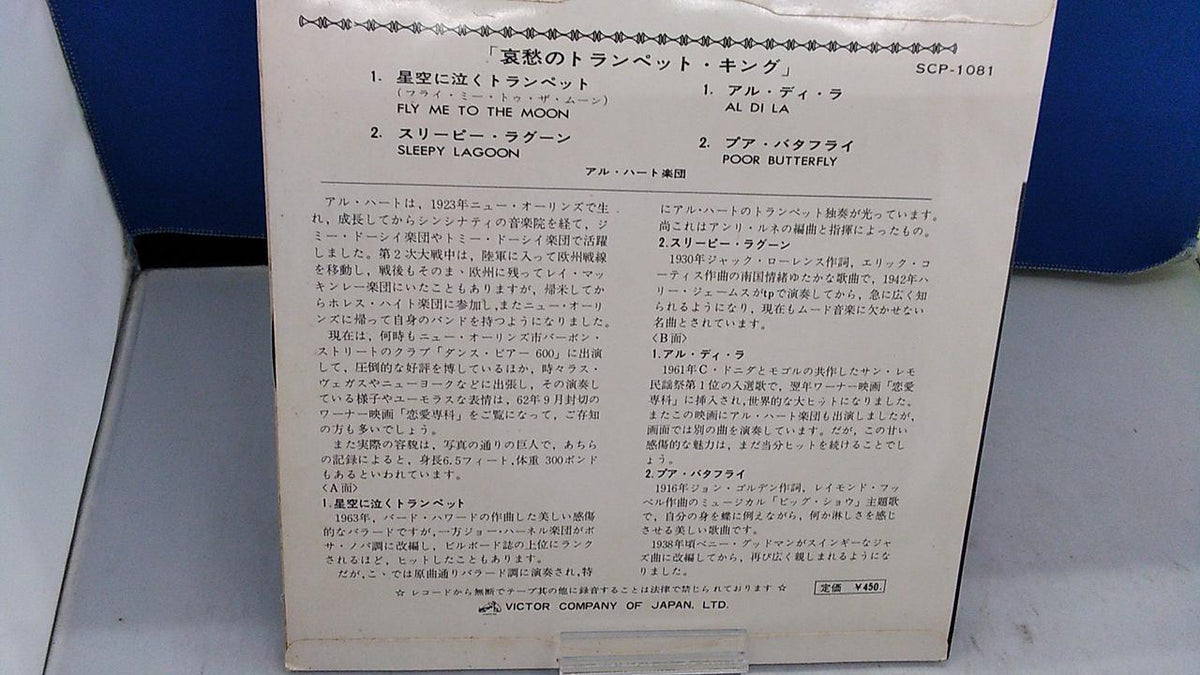 「哀愁のトランペット・キング」
SCP-1081
1. 星空に泣くトランペット
(フライ・ミー・トゥ・ザ・ムーン)
FLY ME TO THE MOON
2. スリーピー・ラグーン
SLEEPY LAGOON
1. アル・ディ・ラ
AL DI LA
2. プア・バタフライ
POOR BUTTERFLY
アル・ハート楽団
アル・ハートは，1923年ニュー・オーリンズで生
れ，成長してからシンシナティの音楽院を経て，ジ
ミー・ドーシイ楽団やトミー・ドーシイ楽団で活躍
しました。第2次大戦中は，陸軍に入って欧州戦線
を移動し，戦後もそのまゝ欧州に残ってレイ・マッ
キンレー楽団にいたこともありますが，帰米してか
らホレス・ハイト楽団に参加し，またニュー・オーリ
ンズに帰って自身のバンドを持つようになりました。
現在は，何時もニュー・オーリンズ市バーボン・
ストリートのクラブ「ダンス・ピアー 600」に出演
して，圧倒的な好評を博しているほか，時々ラス・
ヴェガスやニューヨークなどに出張し，その演奏し
ている様子やユーモラスな表情は，62年9月封切の
ワーナー映画「恋愛専科」をご覧になって，ご存知
の方も多いでしょう。
また実際の容貌は，写真の通りの巨人で，あちら
の記録によると，身長6.5フィート，体重 300ポンド
もあるといわれています。
〈A面〉
1.星空に泣くトランペット
1963年，バード・ハワードの作曲した美しい感傷
的なバラードですが，一方ジョー・ハーネル楽団がボ
サ・ノバ調に改編し，ビルボード誌の上位にランク
されるほど，ヒットしたこともあります。
だが，こゝでは原曲通りバラード調に演奏され，特
にアル・ハートのトランペット独奏が光っています。
尚これはアンリ・ルネの編曲と指揮によったもの。
2.スリーピー・ラグーン
1930年ジャック・ローレンス作詞，エリック・コ
ーティス作曲の南国情緒ゆたかな歌曲で，1942年ハ
リー・ジェームスがtpで演奏してから，急に広く知
られるようになり，現在もムード音楽に欠かせない
名曲とされています。
〈B面〉
1.アル・ディ・ラ
1961年C・ドニダとモゴルの共作したサン・レモ
民謡祭第1位の入選歌で，翌年ワーナー映画「恋愛
専科」に挿入され，世界的な大ヒットになりました。
またこの映画にアル・ハート楽団も出演しましたが，
画面では別の曲を演奏しています。だが，この甘い
感傷的な魅力は，まだ当分ヒットを続けることでし
ょう。
2.プア・バタフライ
1916年ジョン・ゴルデン作詞，レイモンド・フッ
ベル作曲のミュージカル「ビッグ・ショウ」主題歌
で，自分の身を蝶に例えながら，何か淋しさを感じ
させる美しい歌曲です。
1938年頃ベニー・グッドマンがスインギーなジャ
ズ曲に改編してから，再び広く親しまれるようにな
りました。
☆ レコードから無断でテープ其の他に録音することは法律で禁じられております ☆
定価 ￥450.
VICTOR COMPANY OF JAPAN, LTD.